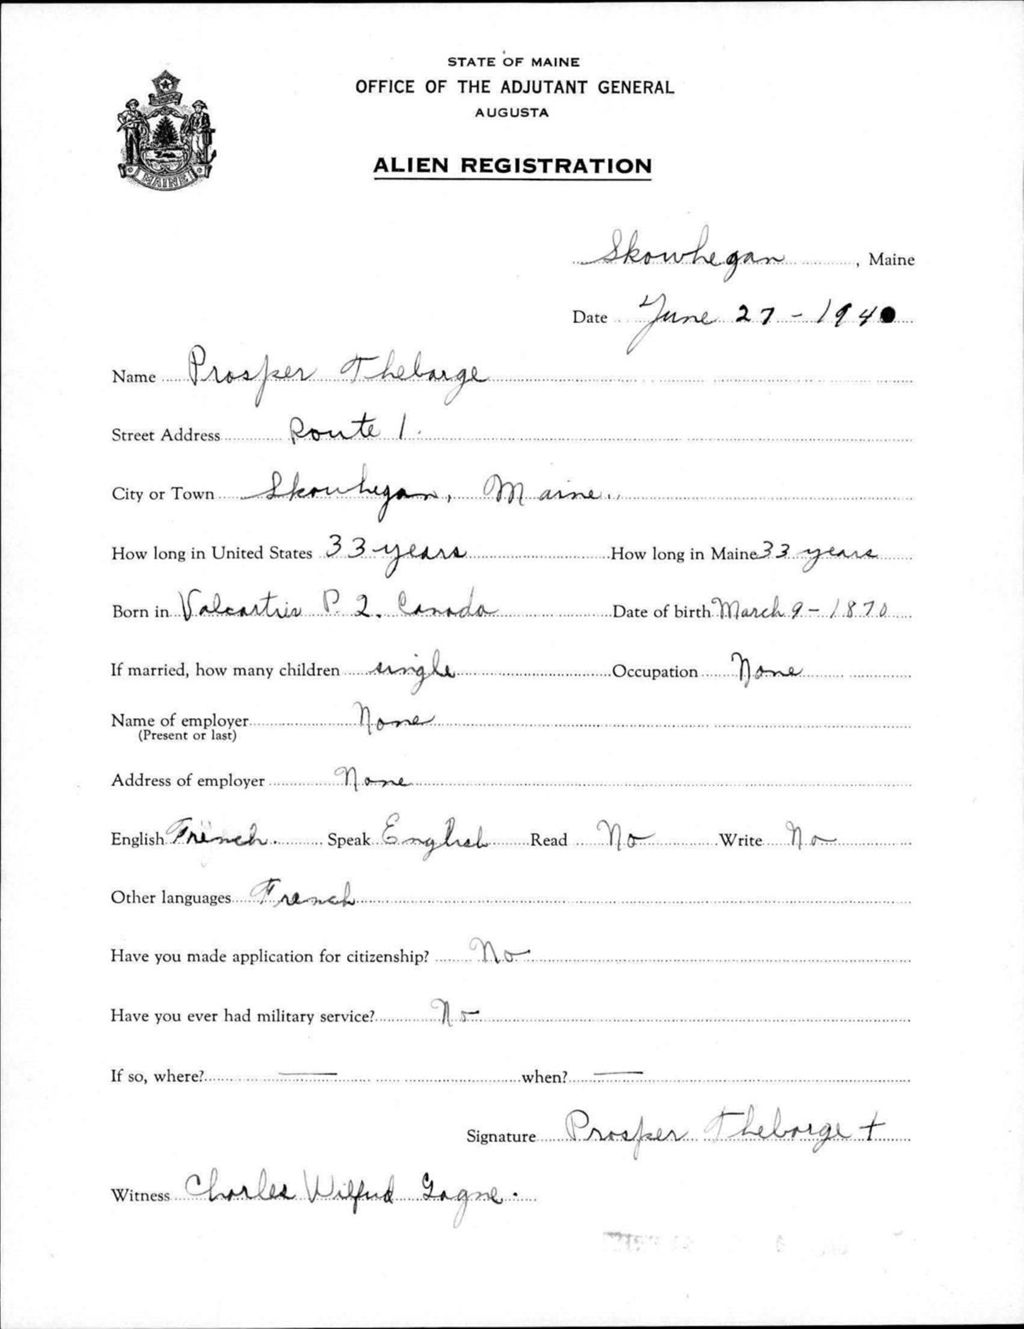 STATE OF MAINE
OFFICE OF THE ADJUTANT GENERAL
AUGUSTA
ALIEN REGISTRATION
MAINE
Skowhegan, Maine
Date June 27 - 1940
Name Prosper Theberge
Street Address Route 1.
City or Town Skowhegan, Maine.
How long in United States 33 years How long in Maine 33 years
Born in Valcartier P. Q. Canada Date of birth March 9 - 1870
If married, how many children single Occupation None
Name of employer None
(Present or last)
Address of employer None
English French. Speak English Read No Write No
Other languages French
Have you made application for citizenship? No
Have you ever had military service? No
If so, where? — when? —
Signature Prosper Theberge +
Witness Charles Wilfred Gagne.